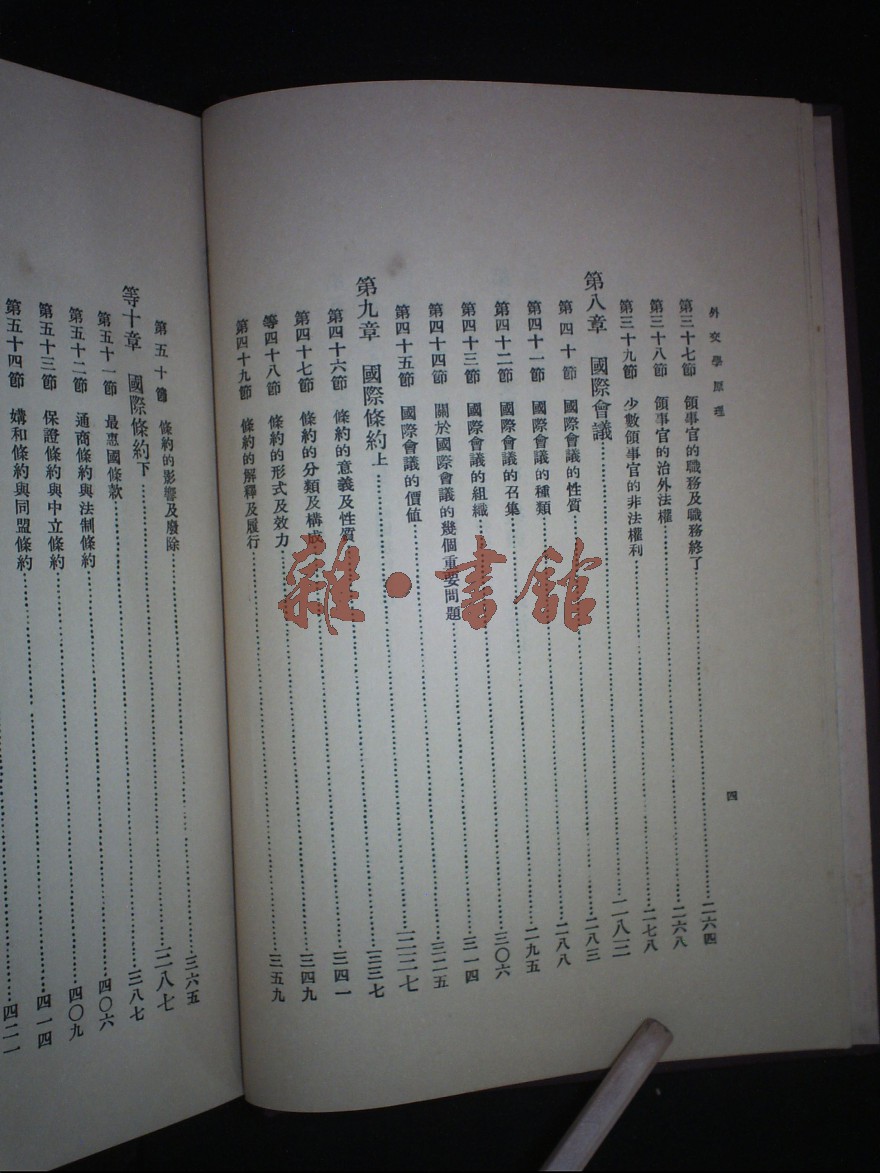 外交學原理
四
第三十七節 領事官的職務及職務終了……二六四
第三十八節 領事官的治外法權……二六八
第三十九節 少數領事官的非法權利……二七八
第八章 國際會議……二八二
第四十節 國際會議的性質……二八三
第四十一節 國際會議的種類……二八八
第四十二節 國際會議的召集……二九五
第四十三節 國際會議的組織……三〇六
第四十四節 關於國際會議的幾個重要問題……三一四
第四十五節 國際會議的價値……三二五
第九章 國際條約上……三三七
第四十六節 條約的意義及性質……三三七
第四十七節 條約的分類及構成……三四一
等四十八節 條約的形式及效力……三四九
第四十九節 條約的解釋及履行……三五九
第五十節 條約的影響及廢除……三六五
等十章 國際條約下……三八七
第五十一節 最惠國條款……三八七
第五十二節 通商條約與法制條約……四〇六
第五十三節 保證條約與中立條約……四〇九
第五十四節 媾和條約與同盟條約……四一四
四二一
雜·書館